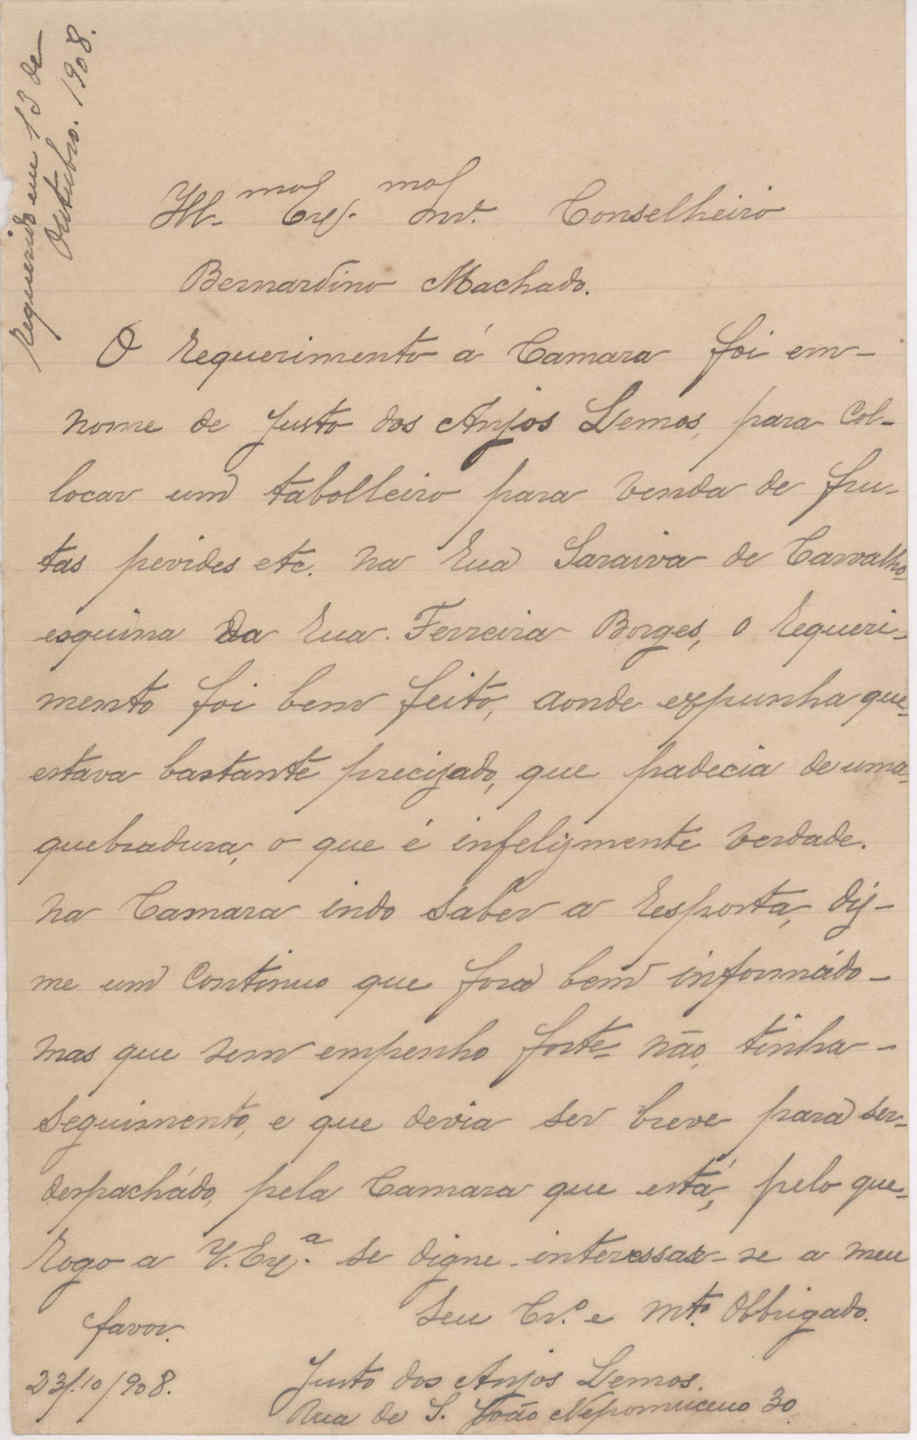 Requerido em 13 de
Outubro. 1908.
Ill.mo Ex.mo Snr. Conselheiro
Bernardino Machado.
O requerimento á Camara foi em-
nome de Justo dos Anjos Lemos, para Col-
locar um tabolleiro para venda de fru-
tas pevides etc. na Rua Saraiva de Carvalho
esquina da Rua Ferreira Borges, o requeri-
mento foi bem feito, aonde expunha que-
estava bastante precizado, que padecia de uma-
quebradura, o que é infelizmente verdade.
Na Camara indo saber a resposta, diz-
me um Continuo que fora bem informádo-
mas que sem empenho forte não, tinha-
seguimento, e que devia ser breve para ser-
despachádo, pela Camara que está, pelo que-
Rogo a V. Ex.ª se digne interessar-se a meu
favor.
Seu Cr.º e Mt.º Obbrigado.
23/10/908.
Justo dos Anjos Lemos.
Rua de S. João Nepomuceno 30